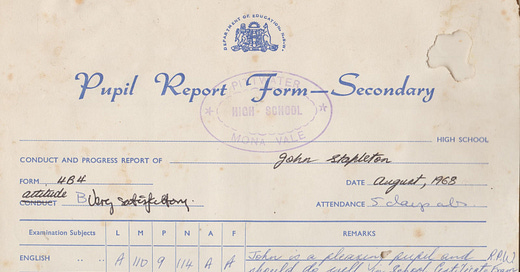 DEPARTMENT OF EDUCATION N.S.W.
Pupil Report Form—Secondary
PITTWATER
HIGH SCHOOL
MONA VALE
HIGH SCHOOL
CONDUCT AND PROGRESS REPORT OF John Stapleton
FORM 4B4 DATE August, 1968
attitude
CONDUCT B Very satisfactory. ATTENDANCE 5 days abs.
Examination Subjects L M P N A F REMARKS
ENGLISH A 110 9 114 A A John is a pleasing pupil and R.P.W
should do well in School Certificate